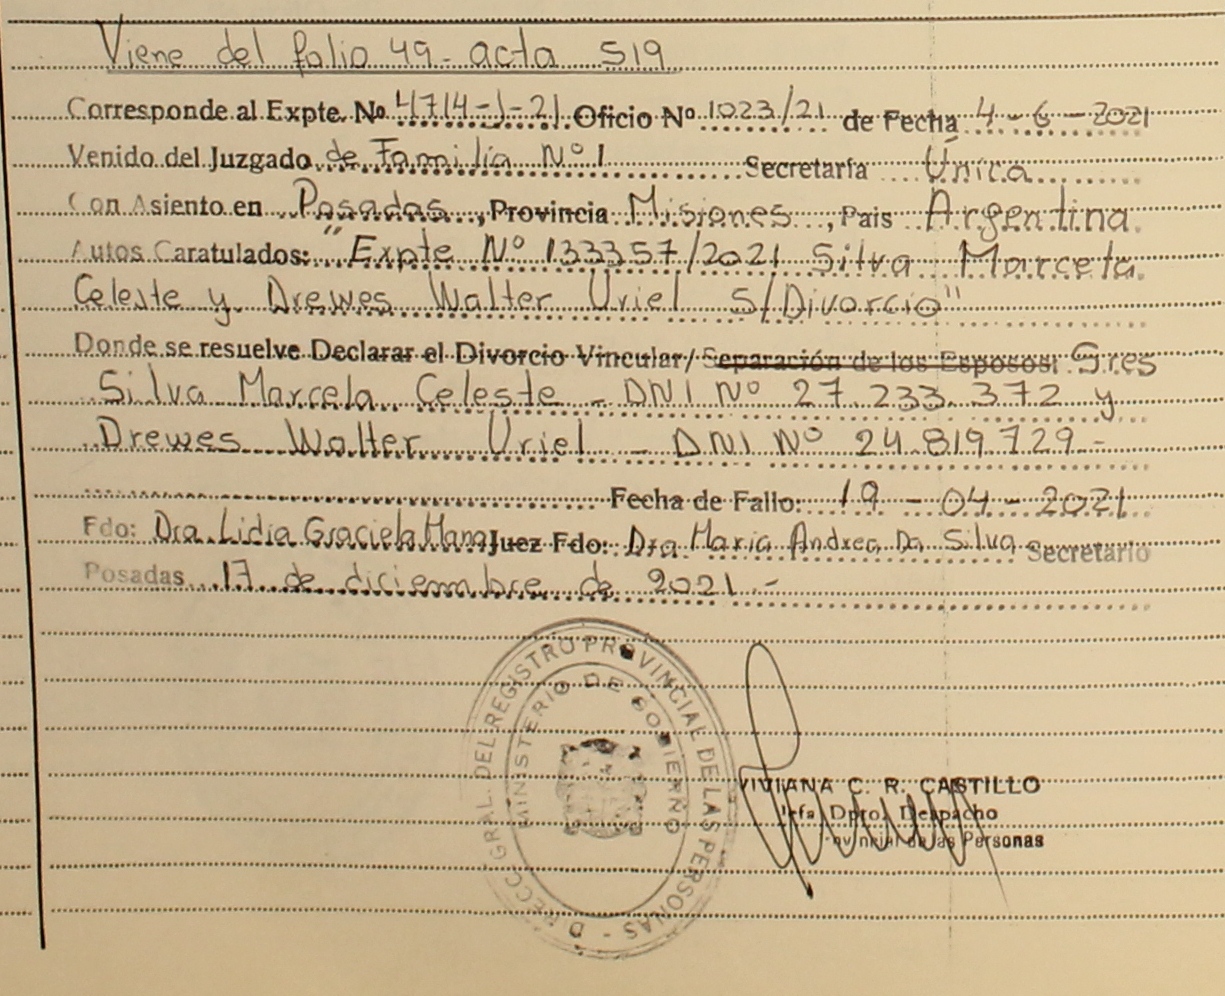 Viene del folio 49 - acta 519
Corresponde al Expte. Nº 4714-J-21 Oficio Nº 1023/21 de Fecha 4 - 6 - 2021
Venido del Juzgado de Familia Nº 1 Secretaría Única
Con Asiento en Posadas, Provincia Misiones, Pais Argentina
Autos Caratulados: "Expte Nº 133357/2021 Silva Marcela
Celeste y Drewes Walter Uriel S/Divorcio"
Donde se resuelve Declarar el Divorcio Vincular/ Separación de los Esposos: Sres
Silva Marcela Celeste - DNI Nº 27.233.372 y
Drewes Walter Uriel - DNI Nº 24.819.729.-
Fecha de Fallo: 19 - 04 - 2021
Fdo: Dra. Lidia Graciela Juez Fdo: Dra Maria Andrea Da Silva Secretario
Posadas 17 de diciembre de 2021.-
DIRECC. GRAL. DEL REGISTRO PROVINCIAL DE LAS PERSONAS -
MINISTERIO DE GOBIERNO
VIVIANA C. R. CASTILLO
Jefa Dpto. Despacho
Provincial de las Personas